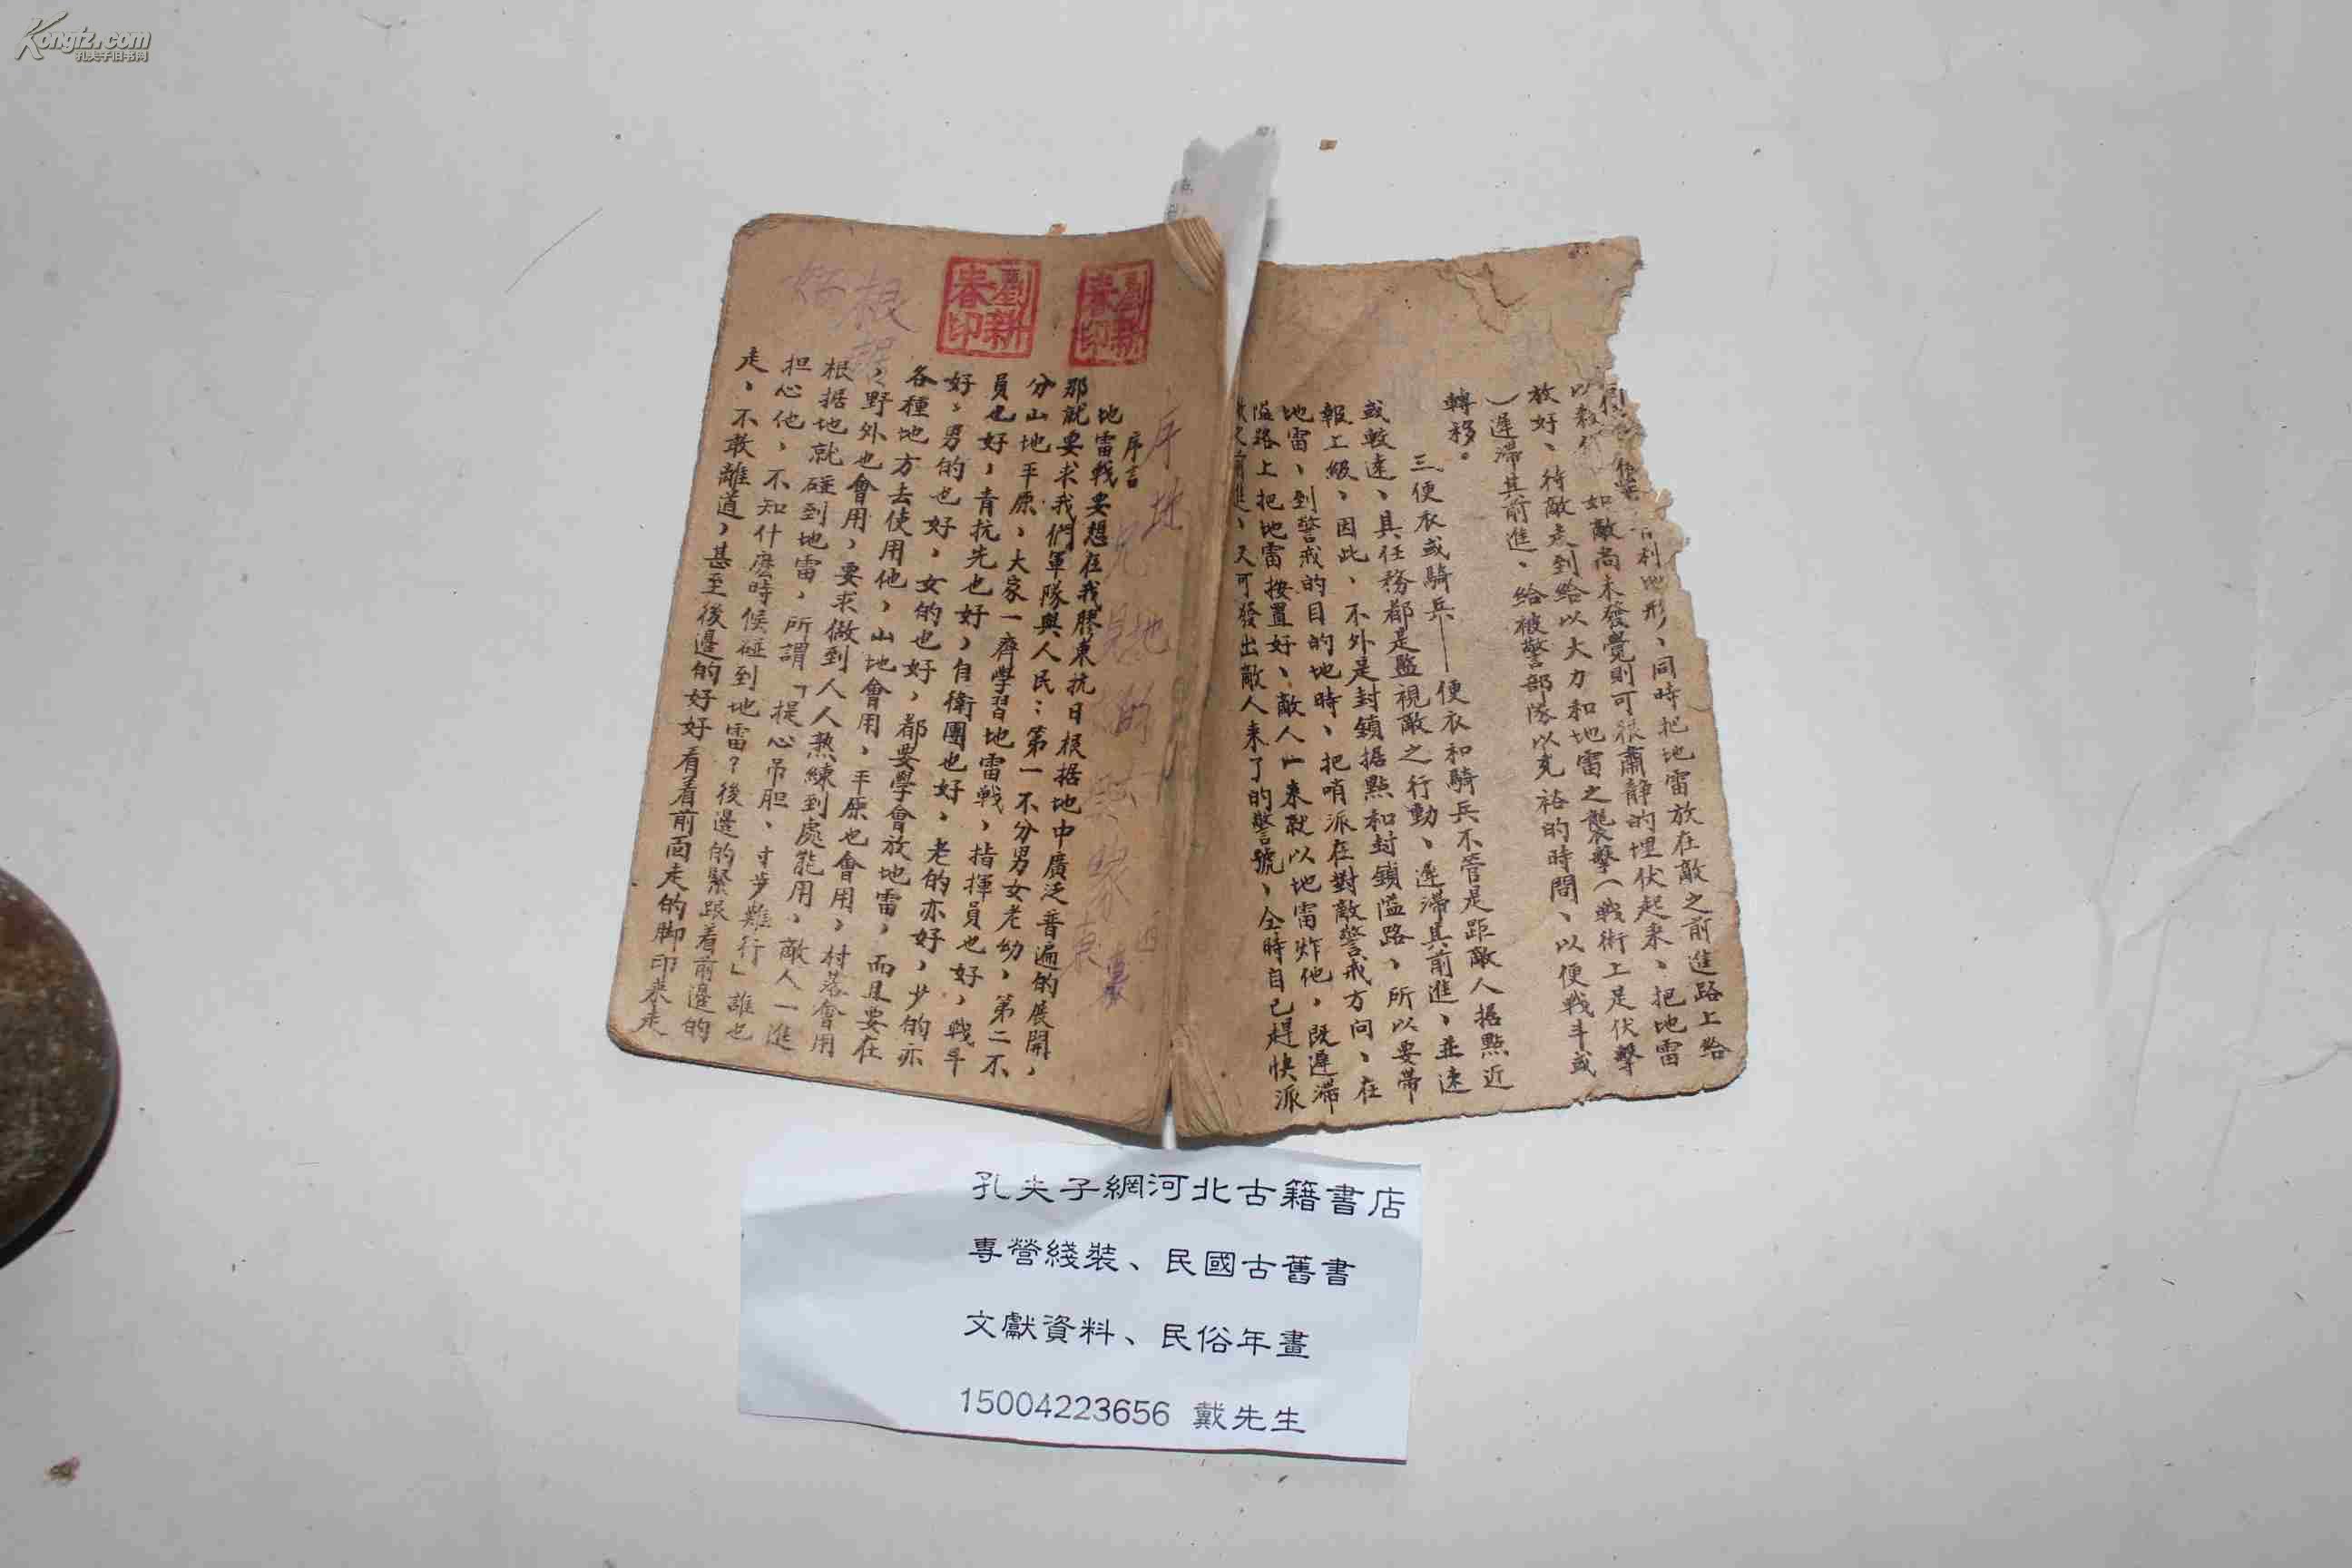 Kongfz.com
孔夫子旧书网
利地形、同時把地雷放在敵之前進路上給
以殺
如敵尚未發覺則可很肅静的埋伏起来、把地雷
放好、待敵走到給以大力和地雷之襲擊（戰術上是伏擊
）遲滞其前進、給被警部隊以充裕的時間、以便戰斗或
轉移。
三、便衣或騎兵——便衣和騎兵不管是距敵人据點近
或較遠、具任務都是監視敵之行動、遲滞其前進、並速
報上級、因此、不外是封鎖据點和封鎖隘路、所以要帶
地雷、到警戒的目的地時、把哨派在對敵警戒方向、在
隘路上把地雷按置好、敵人一来就以地雷炸他，既遲滞
敵人前進、又可發出敵人来了的警號，仝時自己趕快派
劉新春印
劉新春印
根
序
地
地
的
序言
地雷戰要想在我膠東抗日根据地中廣泛普遍的展開，
那就要求我們軍隊與人民：第一不分男女老幼、第二不
分山地平原、大家一齊學習地雷戰、指揮員也好，戰斗
員也好，青抗先也好，自衛團也好、老的亦好，少的亦
好，男的也好，女的也好，都要學會放地雷，而且要在
各種地方去使用他，山地會用、平原也會用，村落會用
，野外也會用，要求做到人人熟練到處能用、敵人一進
根据地就碰到地雷，所謂「提心吊胆、寸步難行」誰也
担心他、不知什麽時候碰到地雷？後邊的緊跟着前邊的
走、不敢離道，甚至後邊的好好看着前面走的脚印来走
孔夫子網河北古籍書店
專營綫裝、民國古舊書
文獻資料、民俗年畫
15004223656 戴先生